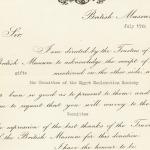 British Museum
July 17th
Sir,
I am directed by the Trustees of
British Museum to acknowledge the receipt of
gifts mentioned on the other side, a
the Committee of the Egypt Exploration Society
have been so good as to present to them: and
to request that you will convey to the
Committee
expression of the best thanks of the Trus
the British Museum for this donation
I have the honour to be